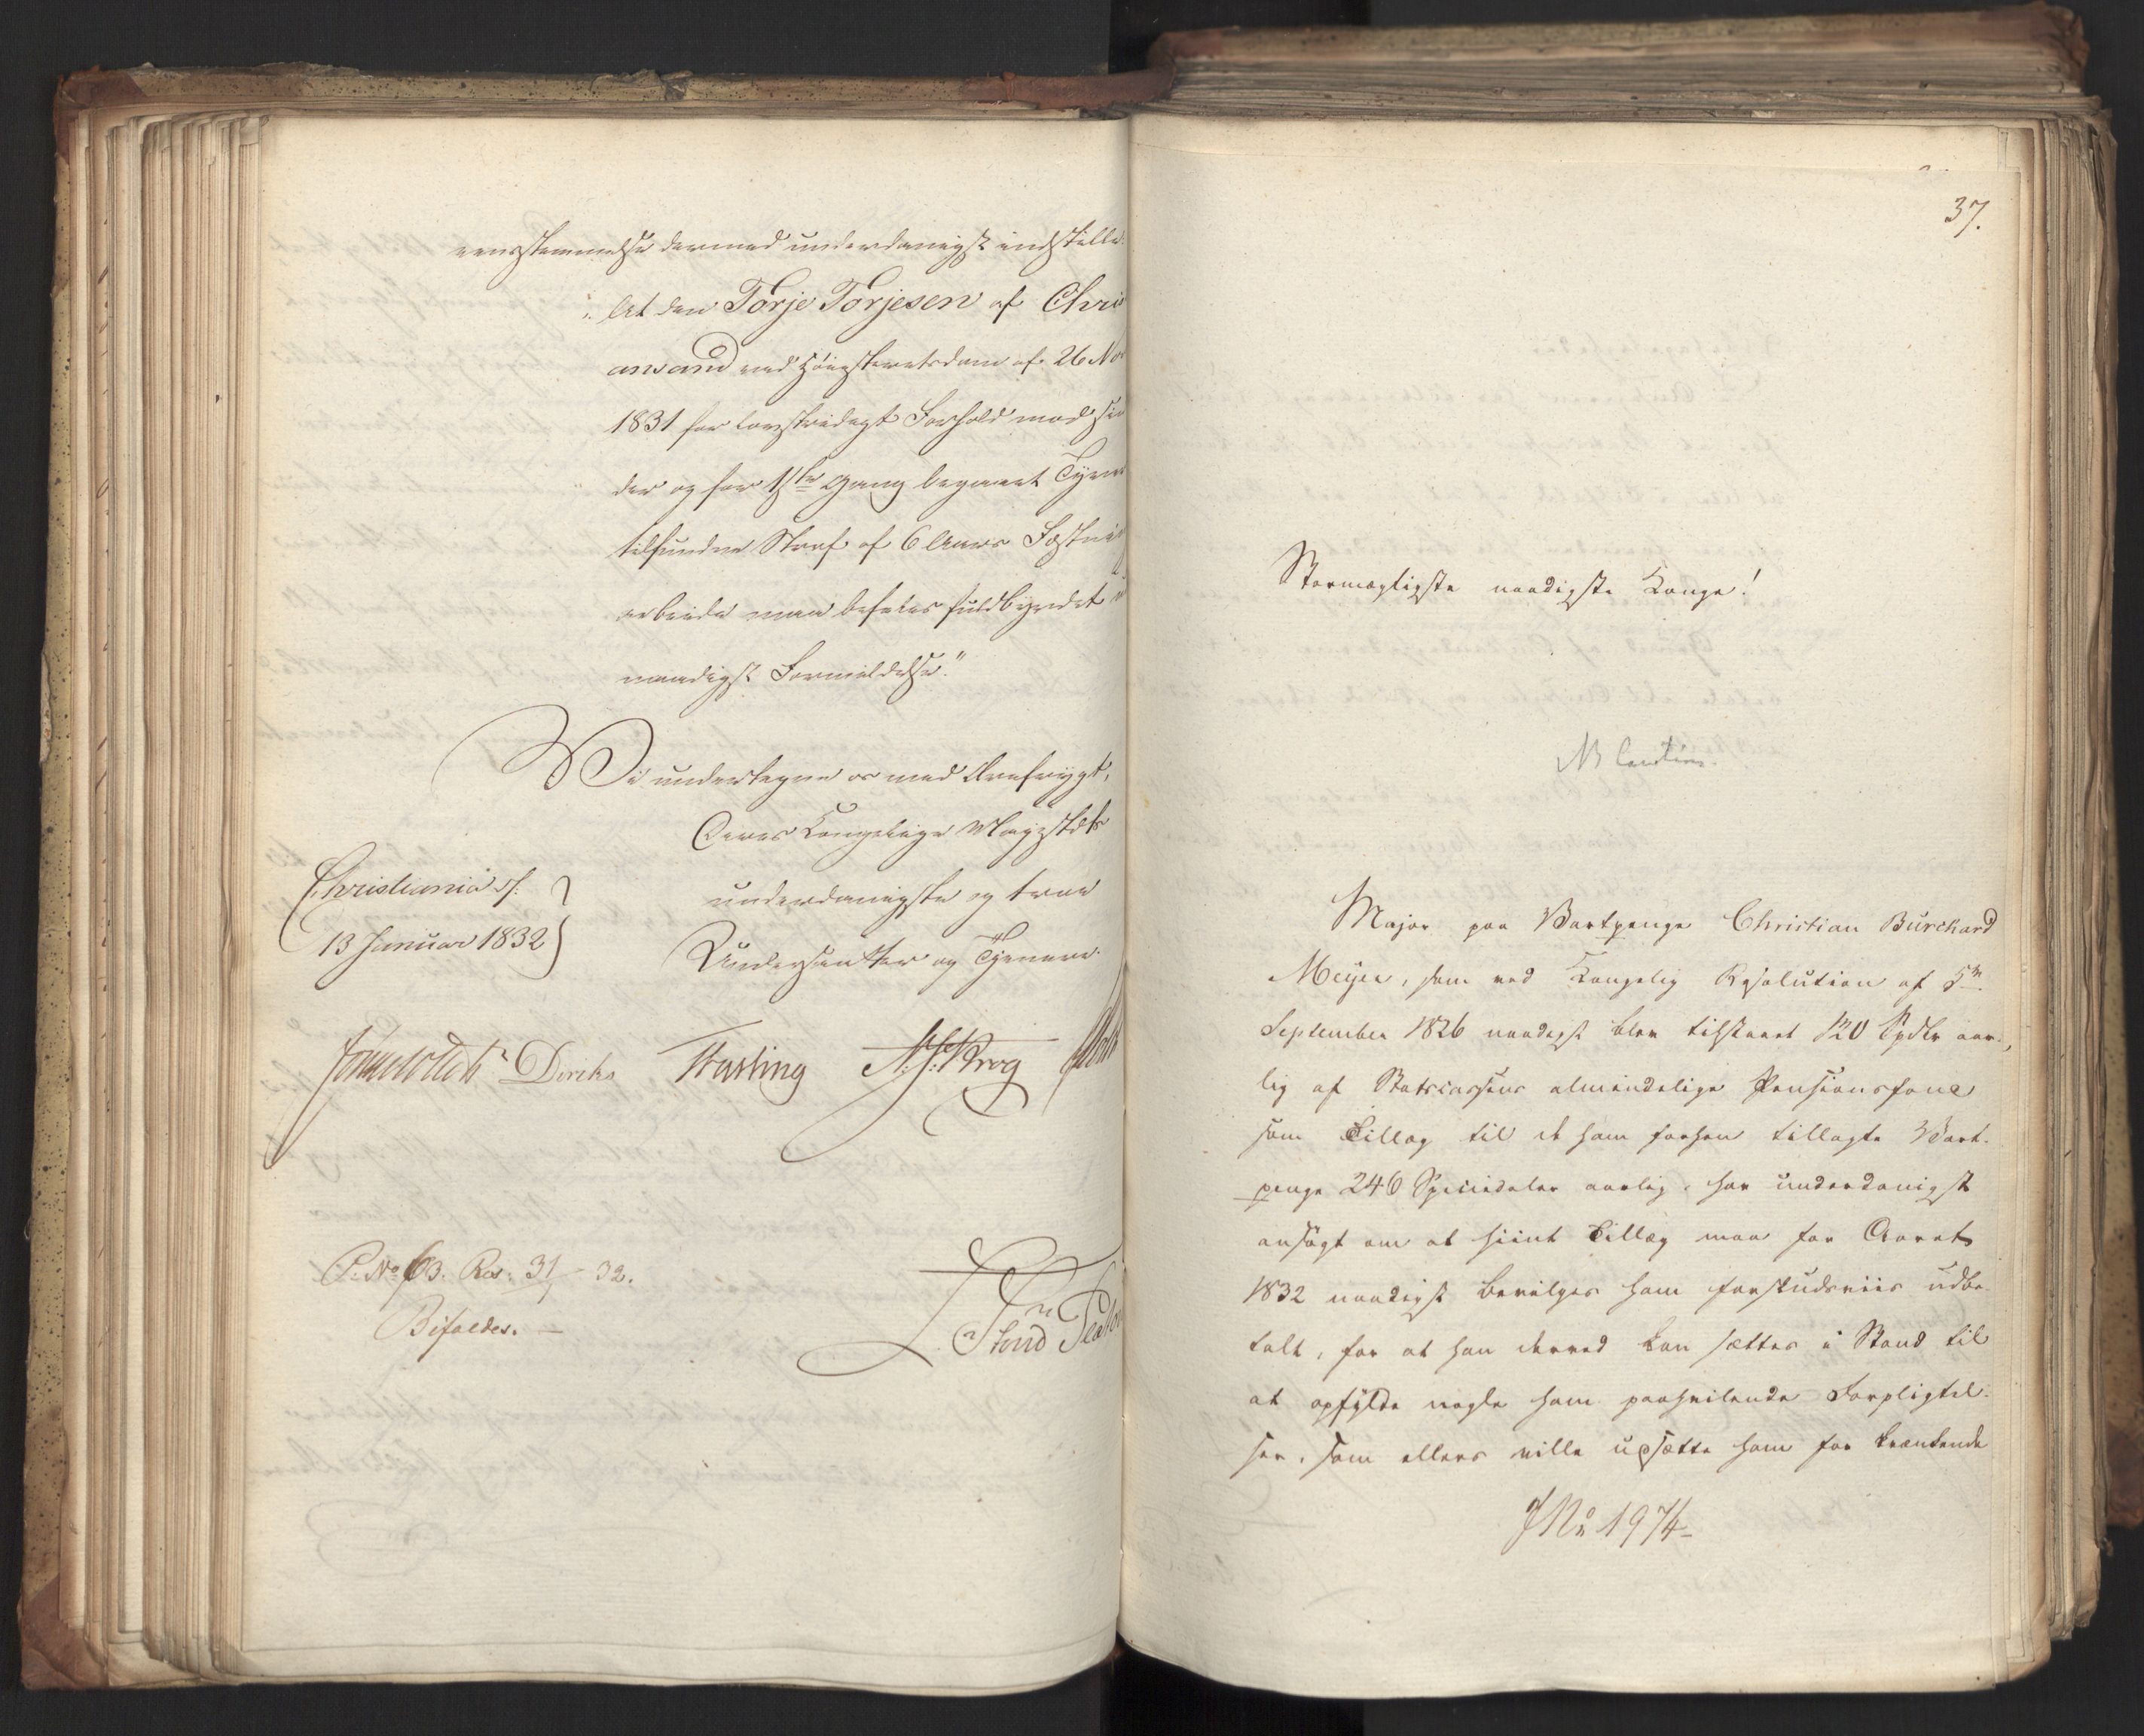 eensstemmelse dermed underdanigst indstille:
"At den Torje Torjesen af Chri
ansand ved Høiesteretsdom af 26 Nov
1831 for lovstridigt Forhold mod sin
der og for 1ste Gang begaaet Tyve
tilfundne Straf af 6 Aars Fæstnin
arbeide maa befales fuldbyrdet
naadigst Formildelse."
Vi undertegne os med Ærefrygt,
Deres Kongelige Majestæts
Christiania d.
underdanigste og troe
13 Januar 1832
Undersaatter og Tjenere.
Diriks Fasting N. J. Krog
P. No 63. Res. 31/1 - 32.
Bifaldes. —
37.
Stormægtigste naadigste Konge!
Major paa Vartpenge Christian Burchard
Meyer, som ved Kongelig Resolution af 5te
September 1826 naadigst blev tilstaaet 120 Spdlr aar-
lig af Statscassens almindelige Pensionsfond
som Tillæg til de ham forhen tillagte Vart-
penge 246 Speciedaler aarlig, har underdanigst
ansøgt om at hiint Tillæg maa for Aaret
1832 naadigst bevilges ham forskudsviis udbe-
talt, for at han derved kan sættes i Stand til
at opfylde nogle ham paahvilende Forpligtel-
ser, som ellers ville udsætte ham for krænkende
JNo 1974